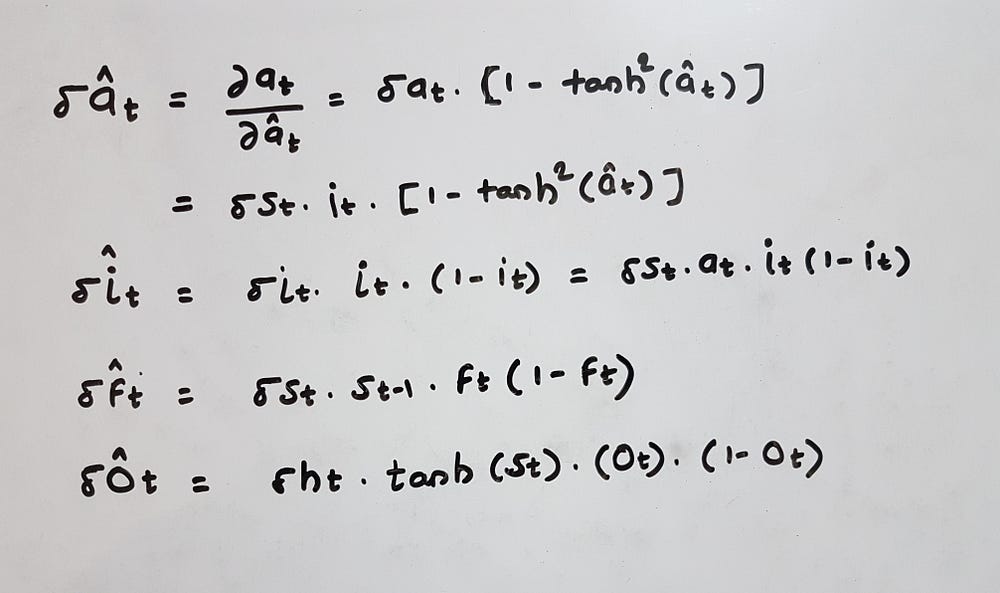 δâₜ = ∂aₜ/∂âₜ = δaₜ · [1 - tanh²(âₜ)]
= δsₜ · iₜ · [1 - tanh²(âₜ)]
δîₜ = δiₜ · iₜ · (1 - iₜ) = δsₜ · aₜ · iₜ (1 - iₜ)
δf̂ₜ = δsₜ · sₜ₋₁ · fₜ (1 - fₜ)
δôₜ = δhₜ · tanh (sₜ) · (oₜ) · (1 - oₜ)